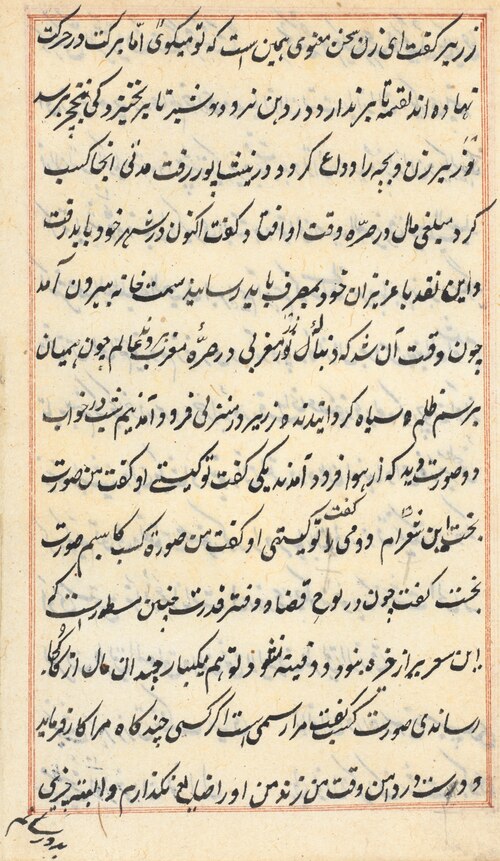 زریر گفت ای زن سخن معنوی همین است که تو میگوی اما برکت در حرکت
نهاده اند لقمه تا بر ندارد در دهن نرود و شیر تا بر نخیزد کی نخچیر رسد
زریر زن و بچه را وداع کرد و در نیشاپور رفت مدتی انجا کسب
کرد مبلغی مال در صره وقت او افتاد گفت اکنون در شهر خود باید رفت
و این نقد با عزیزان خود بمصرف باید رسانید سمت خانه بیرون آمد
چون وقت آن شد که دنبال مغربی در صره مغرب عالم چون همیان
بر سنم ظلم سیاه کردانیدند زریر در منزلی فرود آمد نیم شب در خواب
دو صورت دید که از هوا فرود آمدند یکی گفت تو کیستی او گفت من صورت
بخت این دومی را گفت تو کیستی او گفت من صورة کسب کاسبم صورت
بخت گفت چون در لوح قضا و دفتر قدرت چنین مسطورست که
این زریر از خرده بنود و دفینه نقود تو هم یکبار چندان مال از کجا
رساندی صورت کسب گفت مرا رسمی است اگر کسی چند گاه مرا کار فرماید
و درست در دامن وقت من زند من او را ضایع نگذارم و البته چیزی
بدو رسانم